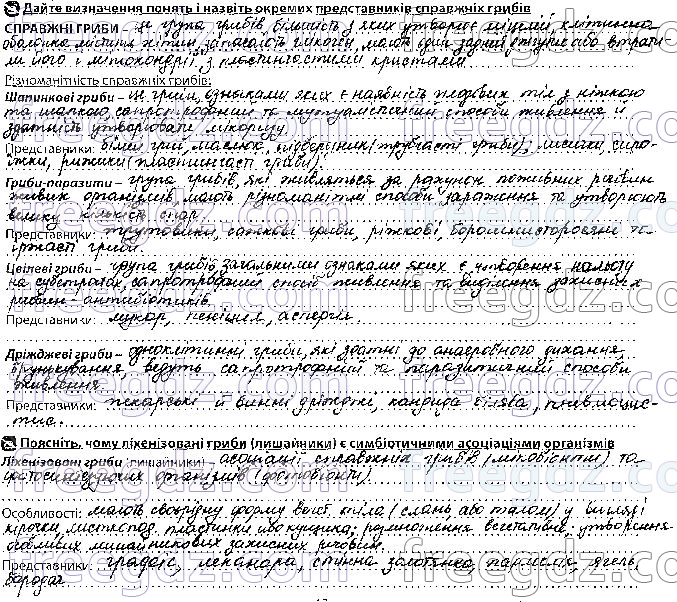 Дайте визначення понять і назвіть окремих представників справжніх грибів
СПРАВЖНІ ГРИБИ - це група грибів, більшість з яких утворює міцелій, клітинна
оболонка містить хітин, запасають глікоген, мають один задній джгутик або втрати-
ли його і мітохондрії з пластинчастими кристами.
Різноманітність справжніх грибів:
Шапинкові гриби – це гриби, ознаками яких є наявність плодових тіл з ніжкою
та шапкою, сапротрофний та мутуалістичний способи живлення й
здатність утворювати мікоризу.
Представники: білий гриб, маслюк, підберезник (трубчасті гриби), лисички, сиро-
їжки, рижики (пластинчасті гриби).
Гриби-паразити – група грибів, які живляться за рахунок поживних речовин
живих організмів, мають різноманітні способи зараження та утворюють
велику кількість спор.
Представники: трутовики, сажкові гриби, ріжкові, борошнисторосяні та
іржасті гриби.
Цвілеві гриби – група грибів, загальними ознаками яких є утворення нальоту
на субстратах, сапротрофний спосіб живлення та виділення захисних
речовин - антибіотиків.
Представники: мукор, пеніцил, аспергіл.
Дріжджеві гриби – одноклітинні гриби, які здатні до анаеробного дихання,
брунькування, ведуть сапротрофний та паразитичний способи
живлення.
Представники: пекарські й винні дріжджі, кандида білява, пневмоцис-
тис.
Поясніть, чому ліхенізовані гриби (лишайники) є симбіотичними асоціаціями організмів
Ліхенізовані гриби (лишайники) – асоціації справжніх грибів (мікобіонти) та
фотосинтезуючих організмів (фотобіонти).
Особливості: мають своєрідну форму вегет. тіла (слань або талом) у вигляді
кірочки, листкопод. пластинки або кущика; розмноження вегетативне, утворення
особливих лишайникових захисних речовин.
Представники: графіс, леканора, стінна золотянка, пармелія, ягель,
бородач
freegdz.com